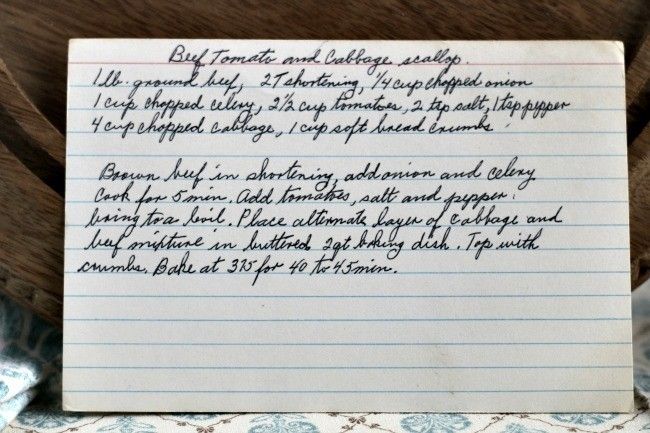 Beef Tomato and Cabbage scallop.
1 lb. ground beef, 2T shortening, 1/4 cup chopped onion
1 cup chopped celery, 2 1/2 cup tomatoes, 2 tsp salt, 1 tsp pepper
4 cup chopped cabbage, 1 cup soft bread crumbs
Brown beef in shortening, add onion and celery
Cook for 5 min. Add tomatoes, salt and pepper.
bring to a boil. Place alternate layer of cabbage and
beef mixture in buttered 2qt baking dish. Top with
crumbs. Bake at 375 for 40 to 45 min.